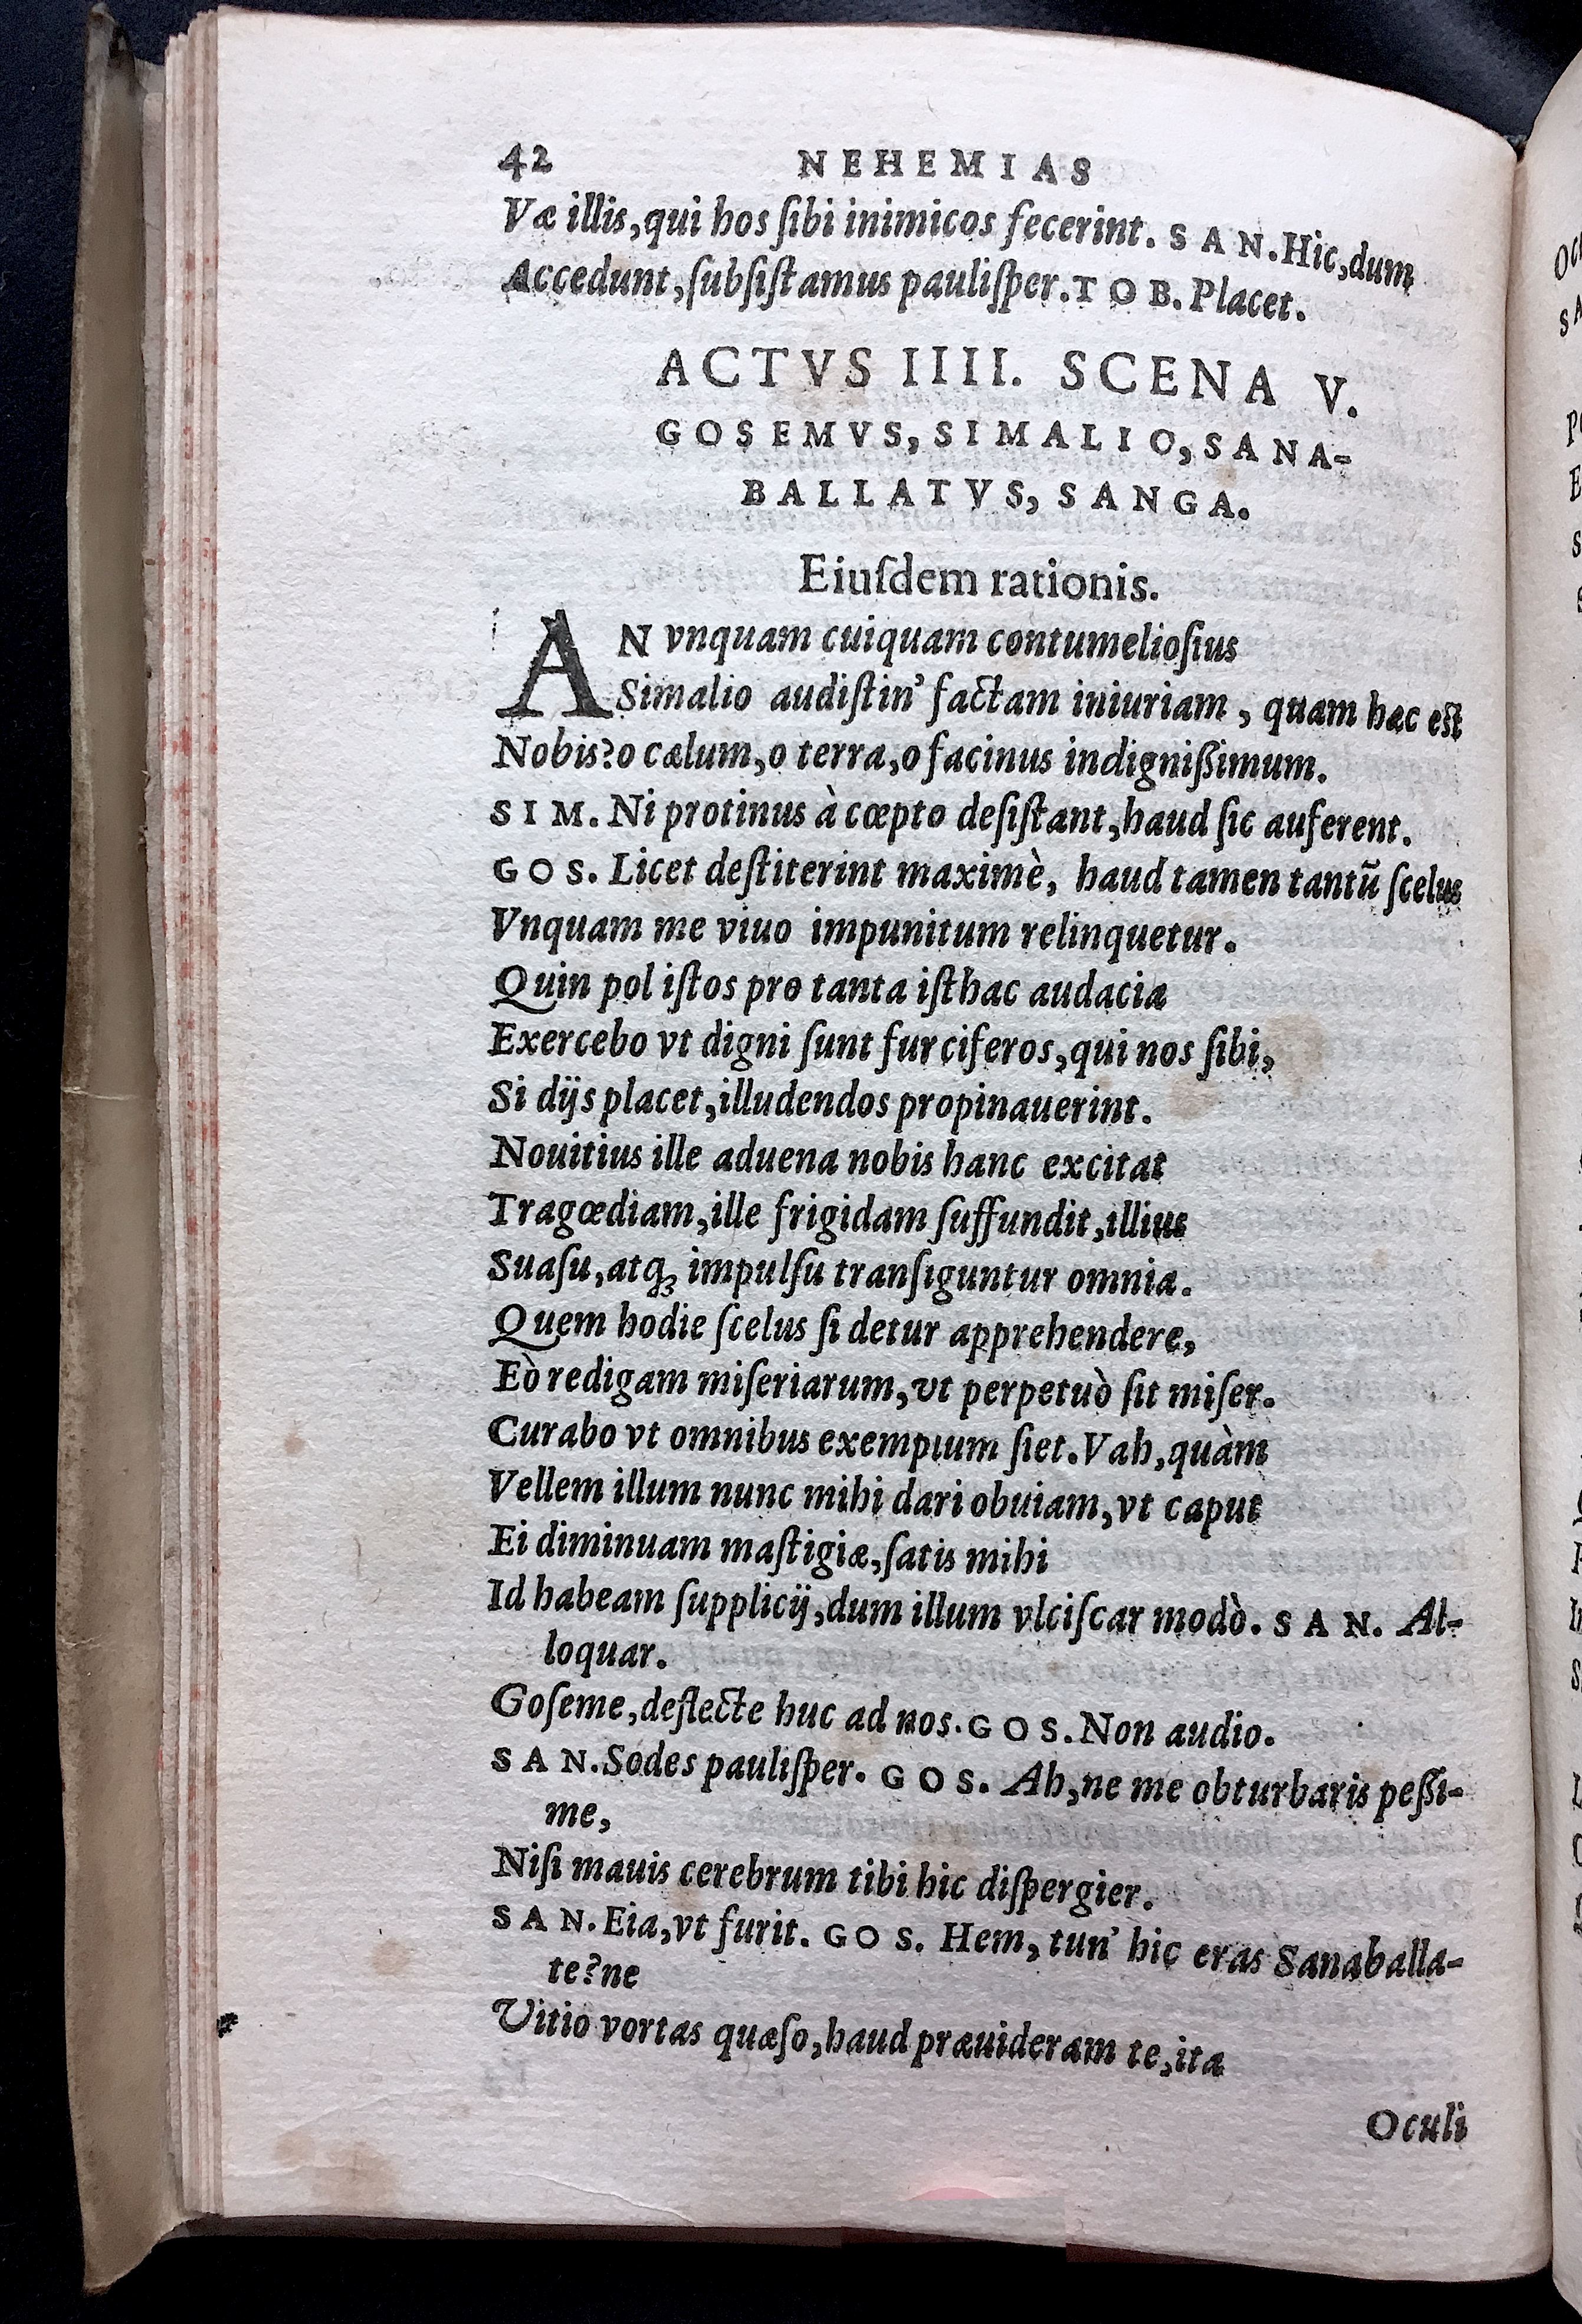 42 NEHEMIAS
Væ illis, qui hos ſibi inimicos fecerint. SAN. Hic, dum
Accedunt, ſubſiſtamus pauliſper. TOB. Placet.
ACTVS IIII. SCENA V.
GOSEMVS, SIMALIO, SANA-
BALLATVS, SANGA.
Eiuſdem rationis.
AN vnquam cuiquam contumelioſius
Simalio audiſtin' factam iniuriam, quam hæc est
Nobis? o cælum, o terra, o facinus indignißimum.
SIM. Ni protinus à cœpto deſiſtant, haud ſic auferent.
GOS. Licet deſtiterint maximè, haud tamen tantũ ſcelus
Vnquam me viuo impunitum relinquetur.
Quin pol iſtos pro tanta iſthac audacia
Exercebo vt digni ſunt furciferos, qui nos ſibi,
Si dijs placet, illudendos propinauerint.
Nouitius ille aduena nobis hanc excitat
Tragœdiam, ille frigidam ſuffundit, illius
Suaſu, atq; impulſu tranſiguntur omnia.
Quem hodie ſcelus ſi detur apprehendere,
Eò redigam miſeriarum, vt perpetuò ſit miſer.
Curabo vt omnibus exemplum ſiet. Vah, quàm
Vellem illum nunc mihi dari obuiam, vt caput
Ei diminuam maſtigiæ, ſatis mihi
Id habeam ſupplicij, dum illum vlciſcar modò. SAN. Al-
loquar.
Goſeme, deflecte huc ad nos. GOS. Non audio.
SAN. Sodes pauliſper. GOS. Ah, ne me obturbaris peßi-
me,
Niſi mauis cerebrum tibi hic diſpergier.
SAN. Eia, vt furit. GOS. Hem, tun' hic eras Sanaballa-
te? ne
Vitio vortas quæſo, haud præuideram te, ita
Oculi